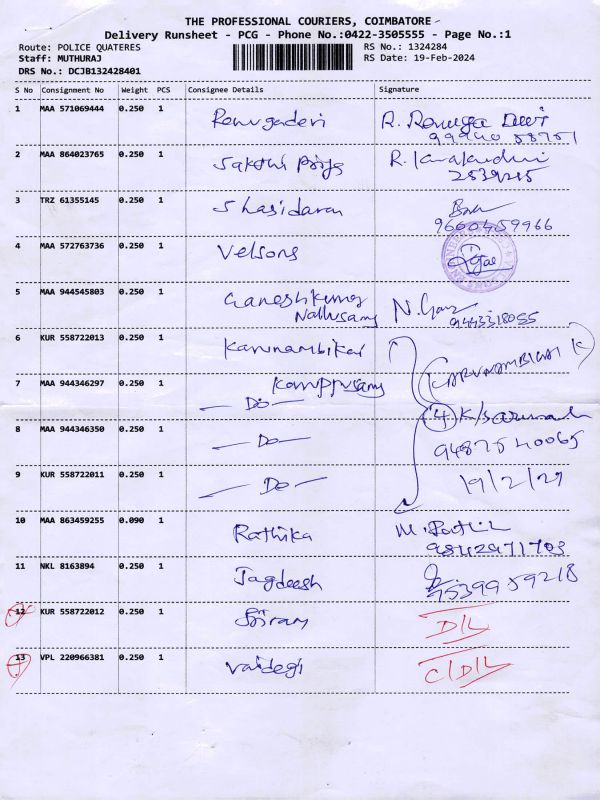 THE PROFESSIONAL COURIERS, COIMBATORE
Delivery Runsheet - PCG - Phone No.:0422-3505555 - Page No.:1
Route: POLICE QUATERES
Staff: MUTHURAJ
DRS No.: DCJB132428401
RS No.: 1324284
RS Date: 19-Feb-2024
S No Consignment No Weight PCS Consignee Details Signature
1 MAA 571069444 0.250 1 Renugadevi R. Renuga Devi
2 MAA 864023765 0.250 1 Sakthi Priya R.
3 TRZ 61355145 0.250 1 Shasidaran
9600459966
4 MAA 572763736 0.250 1 Velsons
5 MAA 944545803 0.250 1 Ganeshkumar
Nallusamy N.
9443318055
6 KUR 558722013 0.250 1 Karunambikai
Karuppusamy
7 MAA 944346297 0.250 1 — Do —
(CARUNAMBIGAI K)
8 MAA 944346350 0.250 1 — Do — (4) K/s
9487540065
9 KUR 558722011 0.250 1 — Do — 19/2/24
10 MAA 863459255 0.090 1 Rathika M.
9842971703
11 NKL 8163894 0.250 1 Jagdeesh
9539959218
12 KUR 558722012 0.250 1 Sriram D/L
13 VPL 220966381 0.250 1 Vaidegi C/D/L